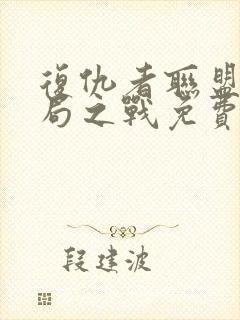 復仇者聯盟
局之戰免費
段建波